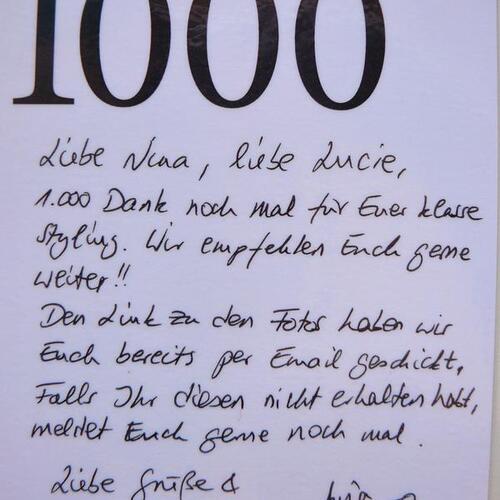 1000
Liebe Nina, liebe Lucie,
1.000 Dank noch mal für Euer klasse
Styling. Wir empfehlen Euch gerne
weiter!!
Den Link zu den Fotos haben wir
Euch bereits per Email geschickt,
Falls Ihr diesen nicht erhalten habt,
meldet Euch gerne noch mal.
Liebe Grüße &